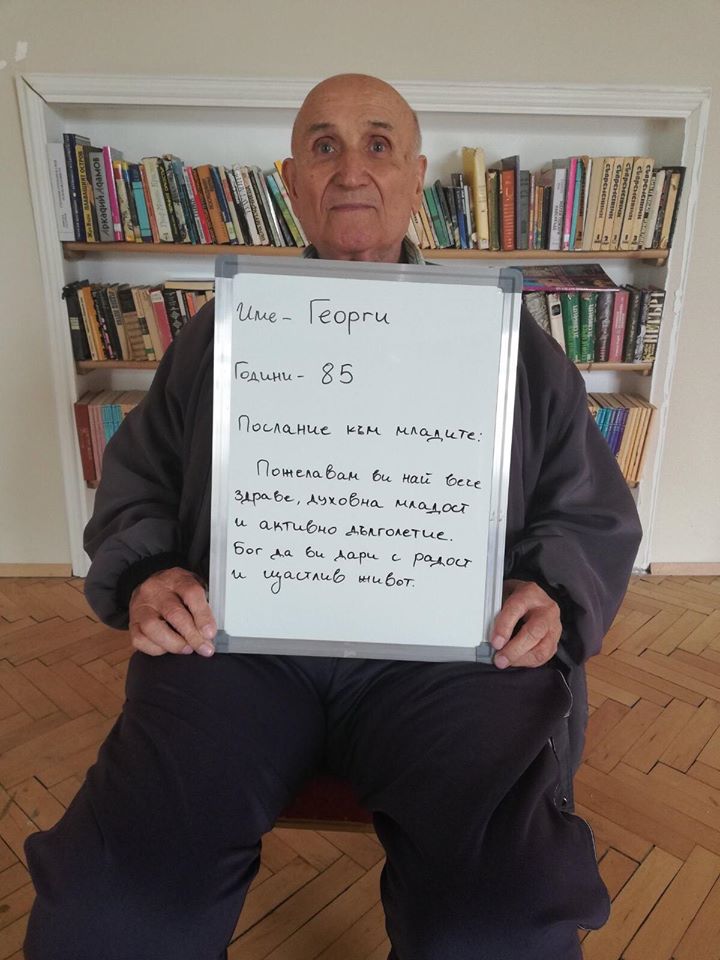 Име - Георги
Години - 85
Послание към младите:
Пожелавам ви най вече
здраве, духовна младост
и активно дълголетие.
Бог да ви дари с радост
и щастлив живот.
АРКАДИЙ АДАМОВ